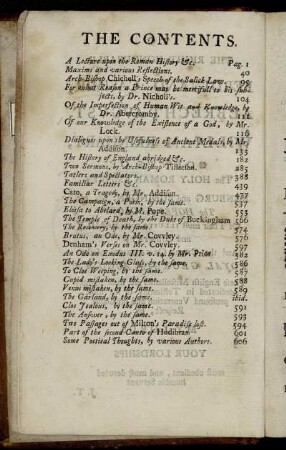 THE CONTENTS.
A Lecture upon the Roman History &c. Pag. 1
Maxims and various Reflections. 40
Arch-Bishop Chichell's Speech of the Salick Law. 99
For what Reason a Prince may be mercifull to his subjects, by Dr. Nicholls. 104
Of the Imperfection of Human Wit and Knowledge, by
Dr. Abercromby. 112
Of our Knowledge of the Existence of a God, by Mr.
Lock. 116
Dialogue upon the Usefulness of Ancient Medals, by Mr.
Addison. 135
The History of England abridged &c. 182
Two Sermons, by Arch-Bishop Tillotson. 385
Tatlers and Spectators. 388
Familiar Letters &c. 439
Cato, a Tragedy, by Mr. Addison. 437
The Campaign, a Poem, by the same. 537
Eloisa to Abelard, by M. Pope. 553
The Temple of Death, by the Duke of Buckingham 566
The Recovery, by the same. 574
Brutus, an Ode, by Mr. Cowley. 576
Denham's Verses on Mr. Cowley. 579
An Ode on Exodus III. v. 14. by Mr. Prior. 582
The Lady's Looking-Glass, by the same. 586
To Cloe Weeping, by the same. 587
Cupid mistaken, by the same. 588
Venus mistaken, by the same. 589
The Garland, by the same. ibid.
Cloe Jealous, by the same. 591
The Answer, by the same. 593
Two Passages out of Milton's Paradise lost. 594
Part of the second Canto of Hudibras. 601
Some Poetical Thoughts, by various Authors. 606